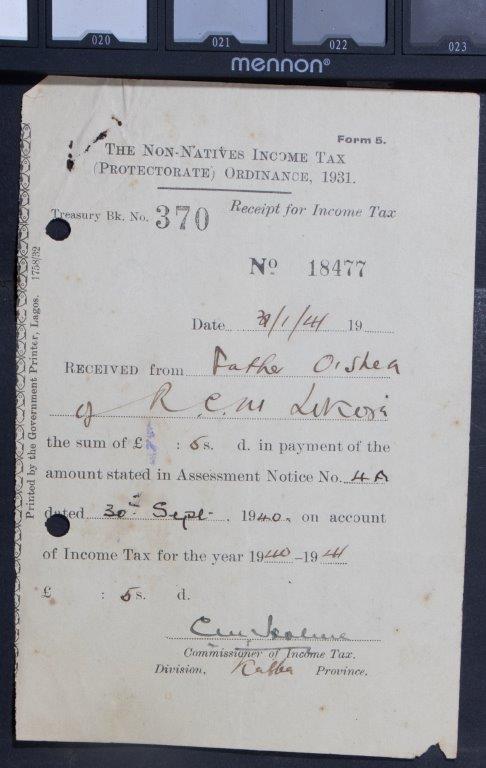 020 021 022 023
mennon®
Form 5.
THE NON-NATIVES INCOME TAX
(PROTECTORATE) ORDINANCE, 1931.
Treasury Bk. No. 370 Receipt for Income Tax
No 18477
Date 31/1/41 19
RECEIVED from Father O'Shea
of R.C.M Lokoja
the sum of £ : 5 s. d. in payment of the
amount stated in Assessment Notice No. 4A
dated 30th Sept. , 1940. on account
of Income Tax for the year 1940-1941
£ : 5 s. d.
Commissioner of Income Tax.
Division, Kabba Province.
Printed by the Government Printer, Lagos. 1758/32